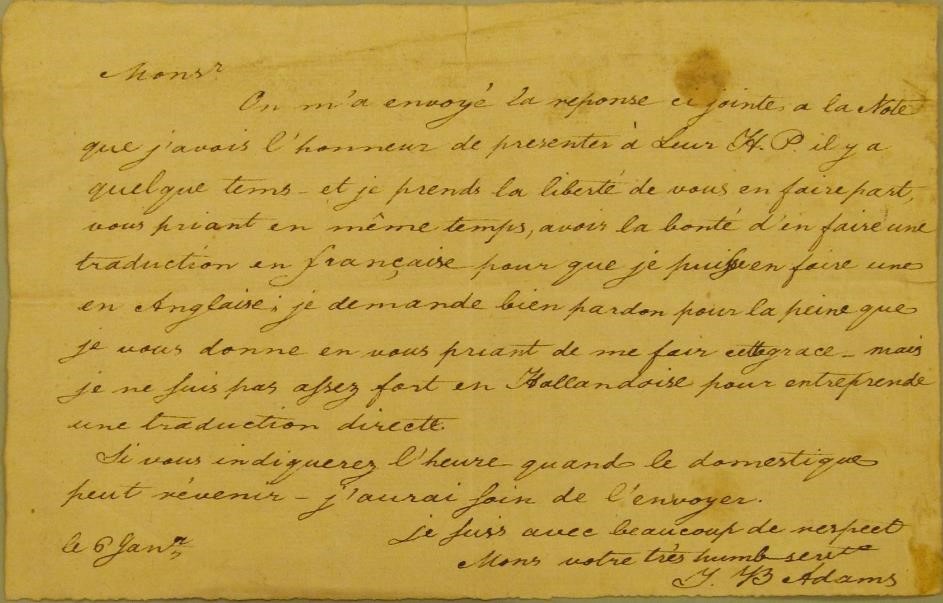 Monsr
On m'a envoyé la reponse ci jointe, a la Note
que j'avois l'honneur de presenter à Leur H. P. il y a
quelque tems - et je prends la liberté de vous en faire part,
vous priant en même temps, avoir la bonté d'en faire une
traduction en française pour que je puisse en faire une
en Anglaise; je demande bien pardon pour la peine que
je vous donne en vous priant de me fair cette grace - mais
je ne suis pas assez fort en Hollandoise pour entreprende
une traduction directe.
Si vous indiquerez l'heure quand le domestique
peut révenir - j'aurai soin de l'envoyer.
je suis avec beaucoup de respect
le 6 Janr
Mons votre très humb servt
J. B Adams